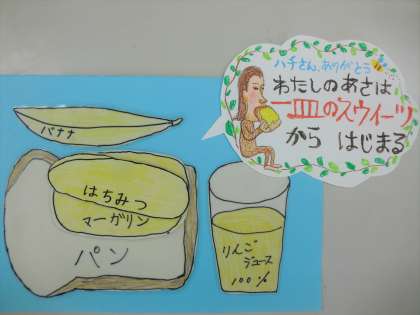 ハチさん、ありがとう
わたしのあさは
一皿のスウィーツ
から はじまる
バナナ
はちみつ
マーガリン
パン
りんご
ジュース
100%